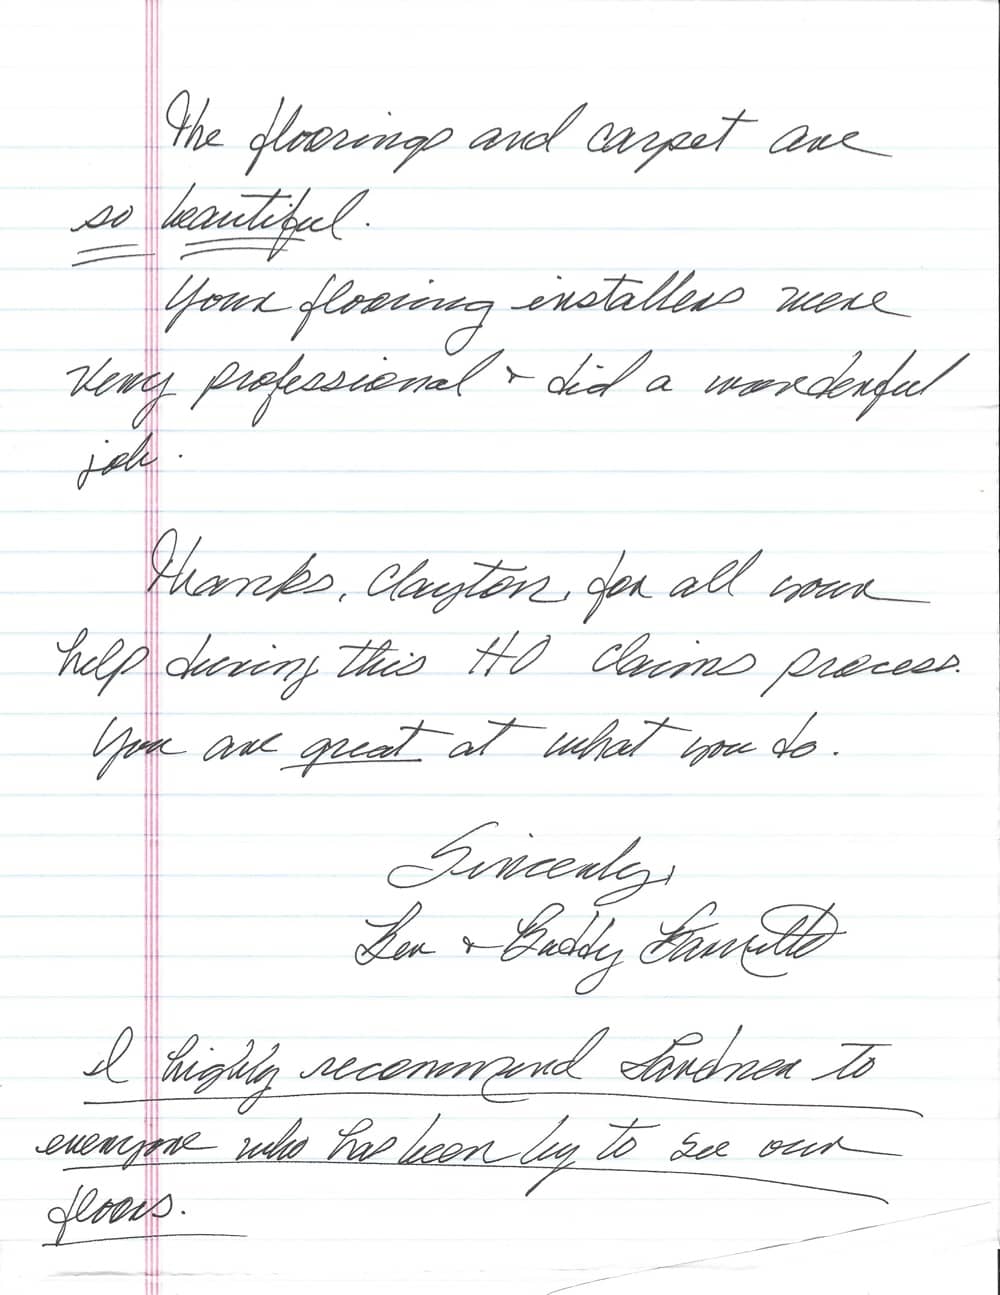 The floorings and carpet are
so beautiful.
Your flooring installers were
very professional & did a wonderful
job.
Thanks, Clayton, for all your
help during this HO claims process.
You are great at what you do.
Sincerely,
& Buddy
I highly recommend to
everyone who has been by to see our
floors.